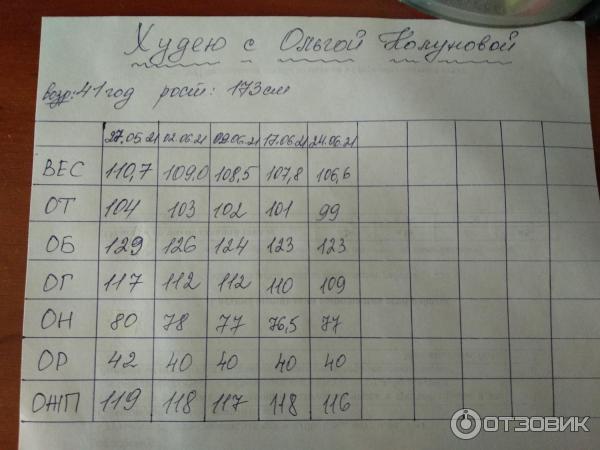 Худею с Ольгой Колуновой
возр: 41 год рост: 173 см
27.05.21 02.06.21 09.06.21 17.06.21 24.06.21
ВЕС 110,7 109,0 108,5 107,8 106,6
ОТ 104 103 102 101 99
ОБ 129 126 124 123 123
ОГ 117 112 112 110 109
ОН 80 78 77 76,5 77
ОР 42 40 40 40 40
ОЖП 119 118 117 118 116
ОТЗОВИК